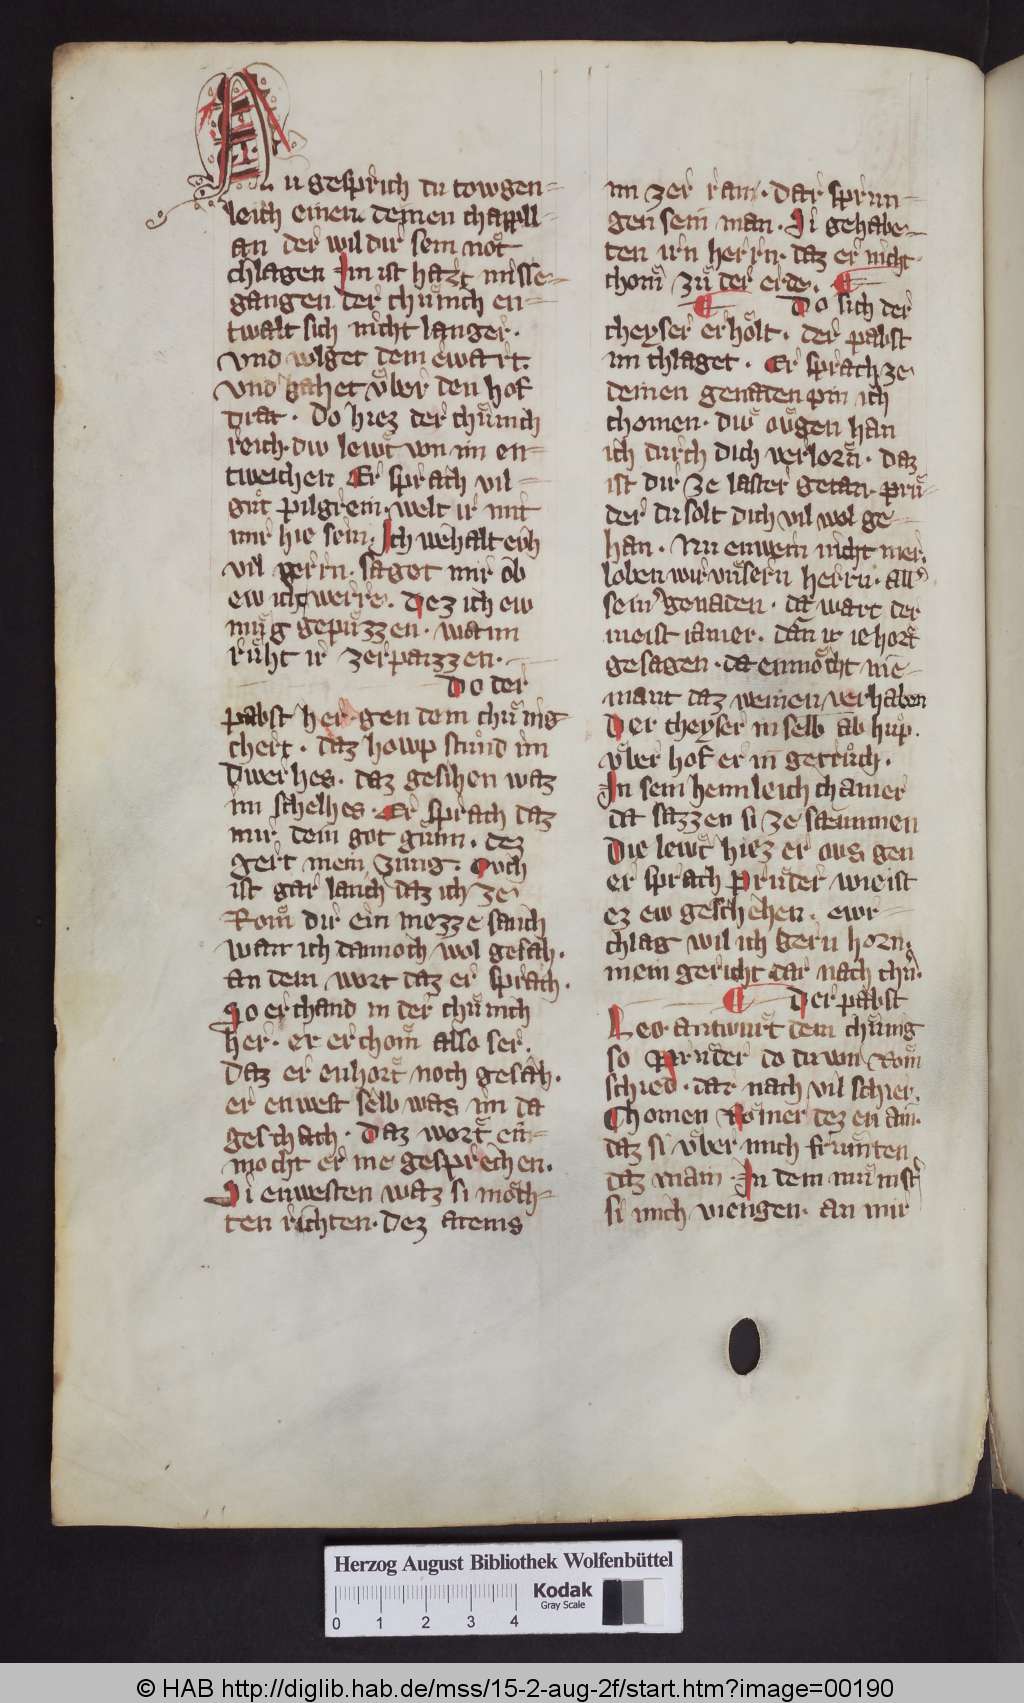 Nu gesprich du towgen=
leich einen deinen chappll
an der wil dir sein not
chlagen Im ist hart misse=
gangen der chunich en=
twalt sich nicht langer.
vnd volget dem ewart.
vnd gahet vber den hof
drat. Do hiez der chunich
reich. diw lewt von im en=
tweichen Er sprach vil=
gut pilgreim. welt ir mit
mir hie sein. Ich wehalt ewch
vil gern. saget mir ob
ew icht werre. Dez ich ew
mug gepuzzen. wann
ruht ir zerpazzen.
Do der
pabst her gen dem chunig
chert. daz howp stund im
Dwerhes. daz gesihen waz
im schelhes. Er sprach daz
mir dein got gunn. dez
gert mein zung. Ouch
ist gar lanch daz ich ze
Rom dir ein mezze sanch
wan ich dannoch wol gesah.
an dem wort daz er sprach.
So erchand in der chunich
her. er erchom also ser.
Daz er enhort noch gesah.
er enwest selb was im da
geschach. Daz wort en=
mocht er nie gesprechen.
Si enwesten waz si moch=
ten richten. Dez atems
im zer ran. Dar sprun=
gen sein man. Si gehabe=
ten irn herrn. daz er nicht
chom zu der erde. ¶
¶ Do sich der
cheyser erholt. der pabst
im chlaget. Er sprach ze
deinen genaden pin ich
chomen. diw ougen han
ich durch dich verlorn. daz
ist dir ze laster getan pru=
der du solt dich vil wol ge=
han. Nu enwein nicht mer.
loben wir vnsern herrn. all
seiner genaden. da wart der
meist iamer. dan ir ie hort
gesagen. da enmocht nie=
mant daz weinen verhaben
Der cheyser in selb ab hup.
vber hof er in getruch.
In sein heimleich chamer
da sazzen si ze samnnen
Die lewt hiez er ous gen
er sprach Pruder wie ist
ez ew geschehen. ewr=
chlag wil ich gern horn.
mein gericht dar nach chern.
¶ Der pabst
Leo. antwurt dem chunig
so Pruder do du von Rom
schied. dar nach vil schier.
Chomen Romer dez en ain.
daz si vber mich frumten
daz main. In dem munster
si mich viengen. an mir
Herzog August Bibliothek Wolfenbüttel
0 1 2 3 4
Kodak
Gray Scale
© HAB http://diglib.hab.de/mss/15-2-aug-2f/start.htm?image=00190